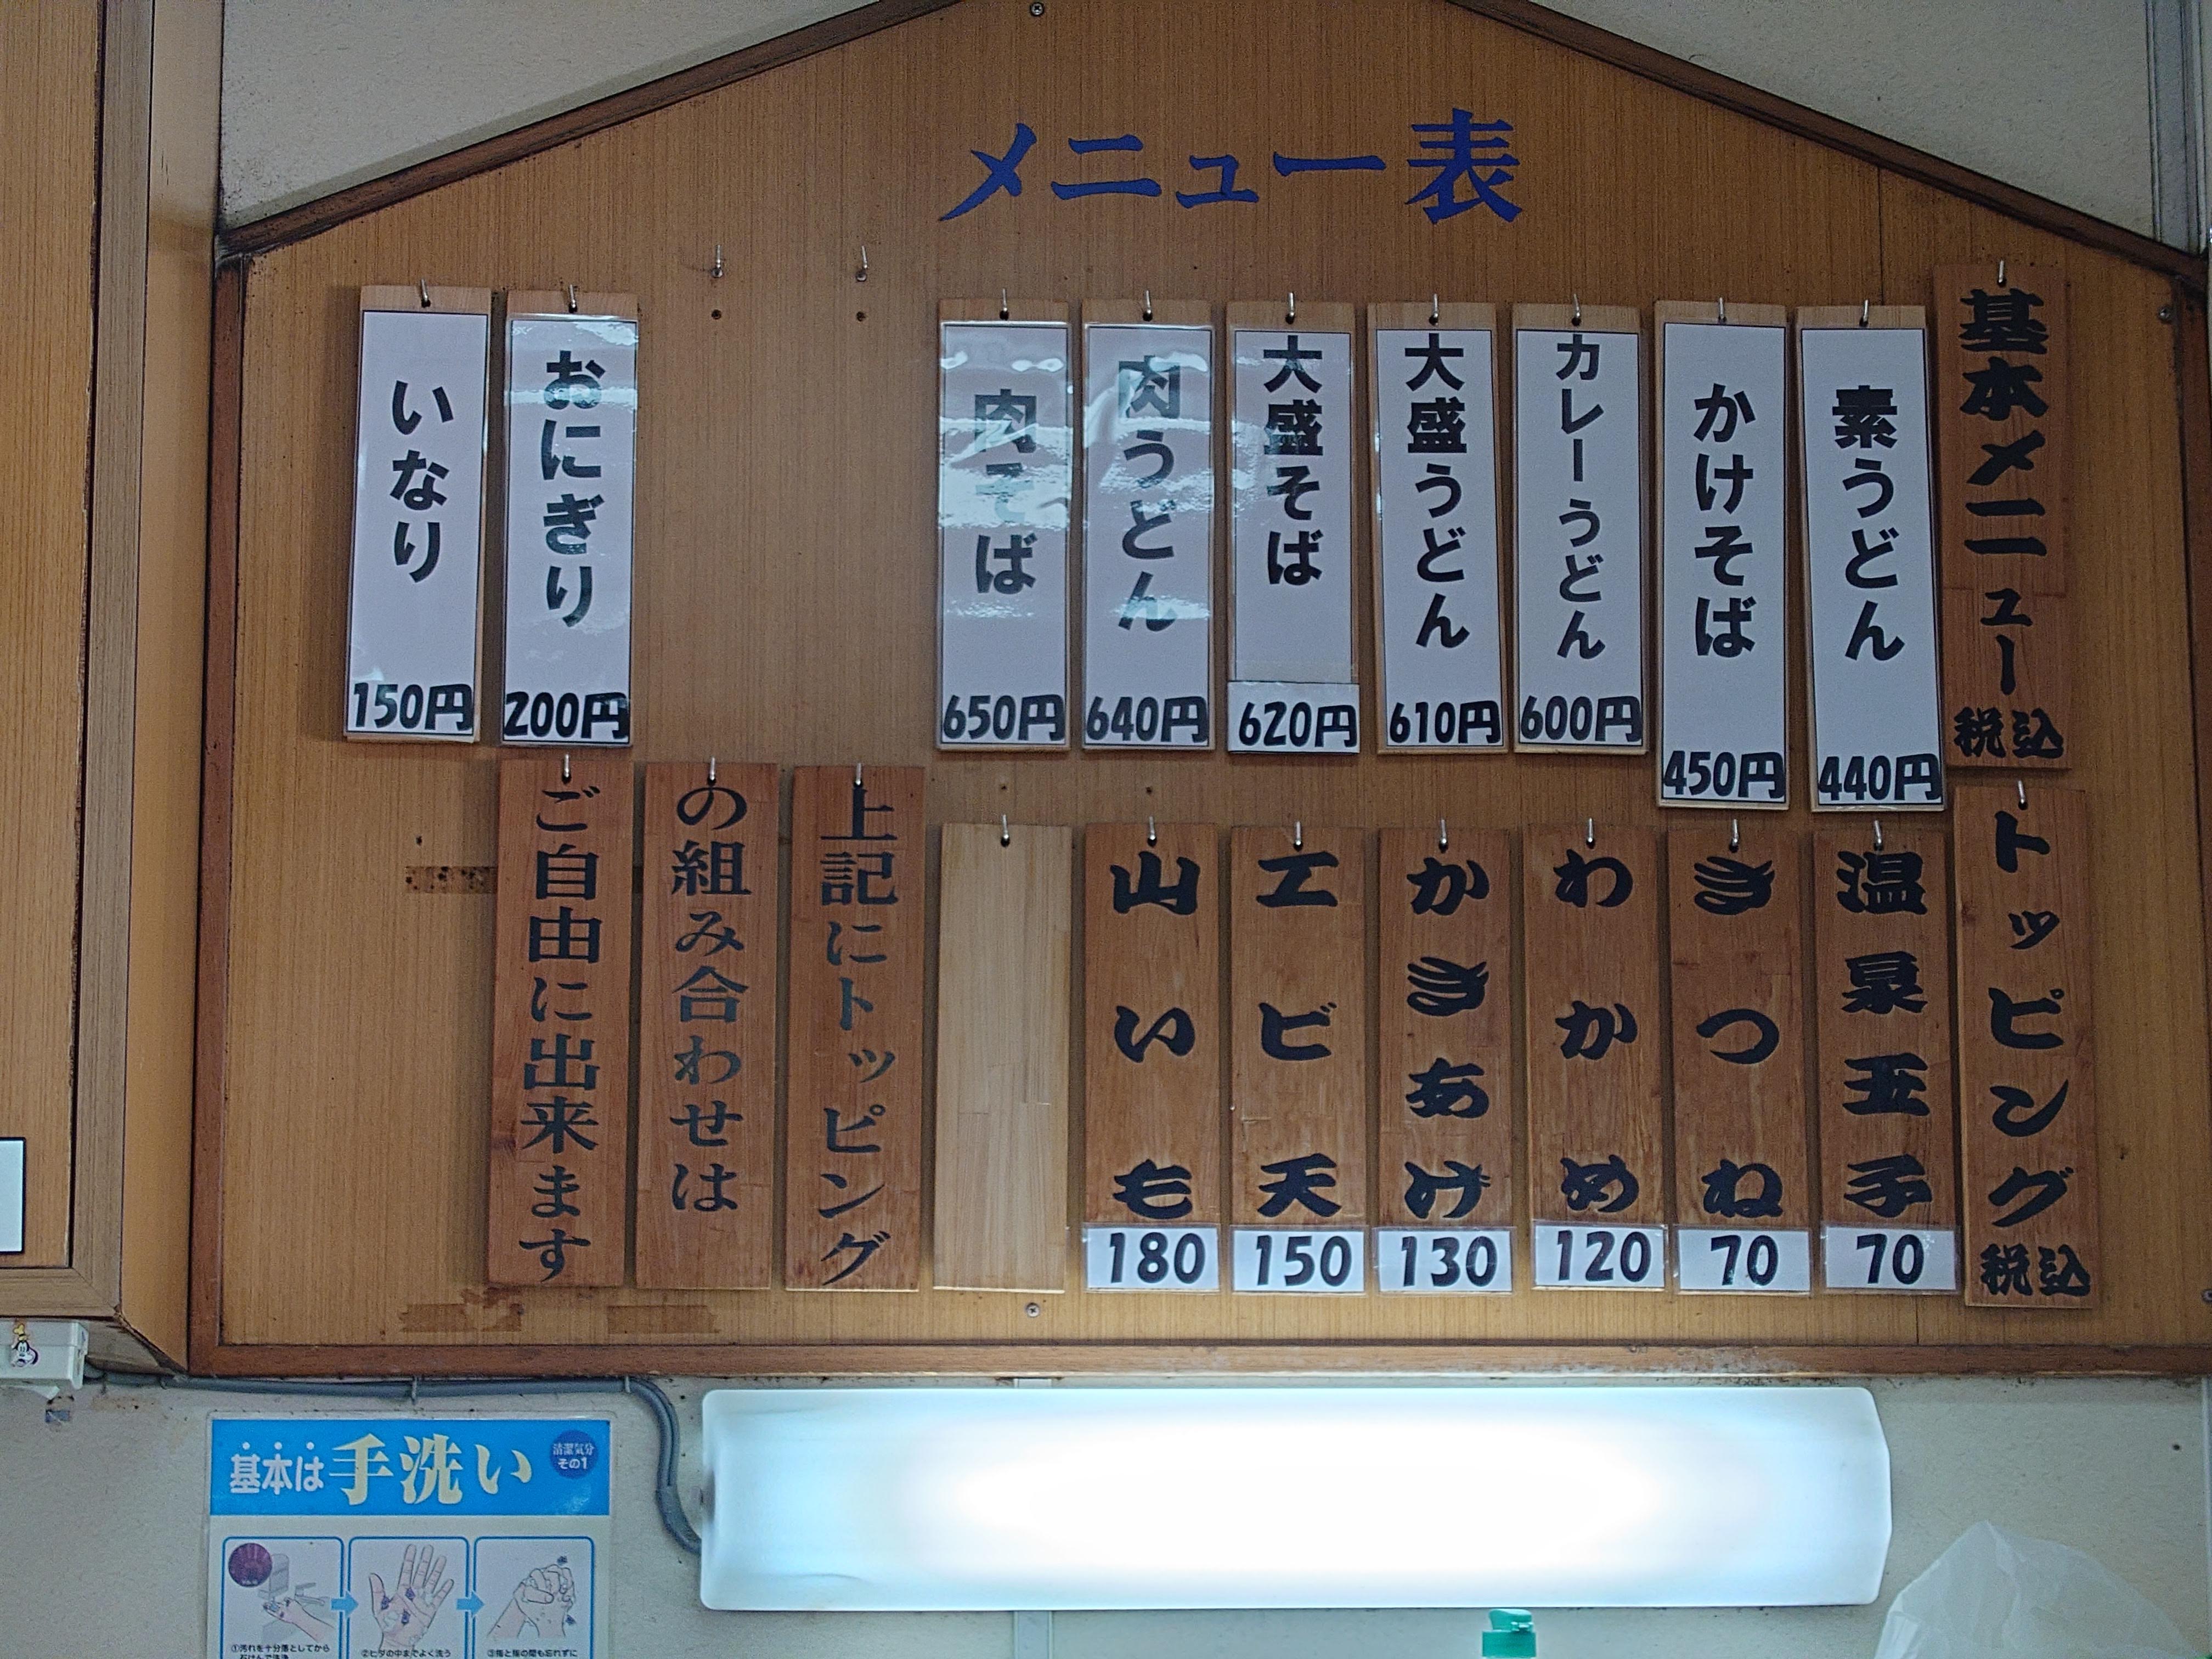 メニュー表
基本メニュー 税込
素うどん 440円
かけそば 450円
カレーうどん 600円
大盛うどん 610円
大盛そば 620円
肉うどん 640円
肉そば 650円
おにぎり 200円
いなり 150円
トッピング 税込
温泉玉子 70
きつね 70
わかめ 120
かきあげ 130
エビ天 150
山いも 180
上記にトッピング
の組み合わせは
ご自由に出来ます
基本は手洗い
清潔気分
その1
①汚れを十分落としてから
石けんで洗浄
②ヒダの中までよく洗う
③指と指の間も忘れずに